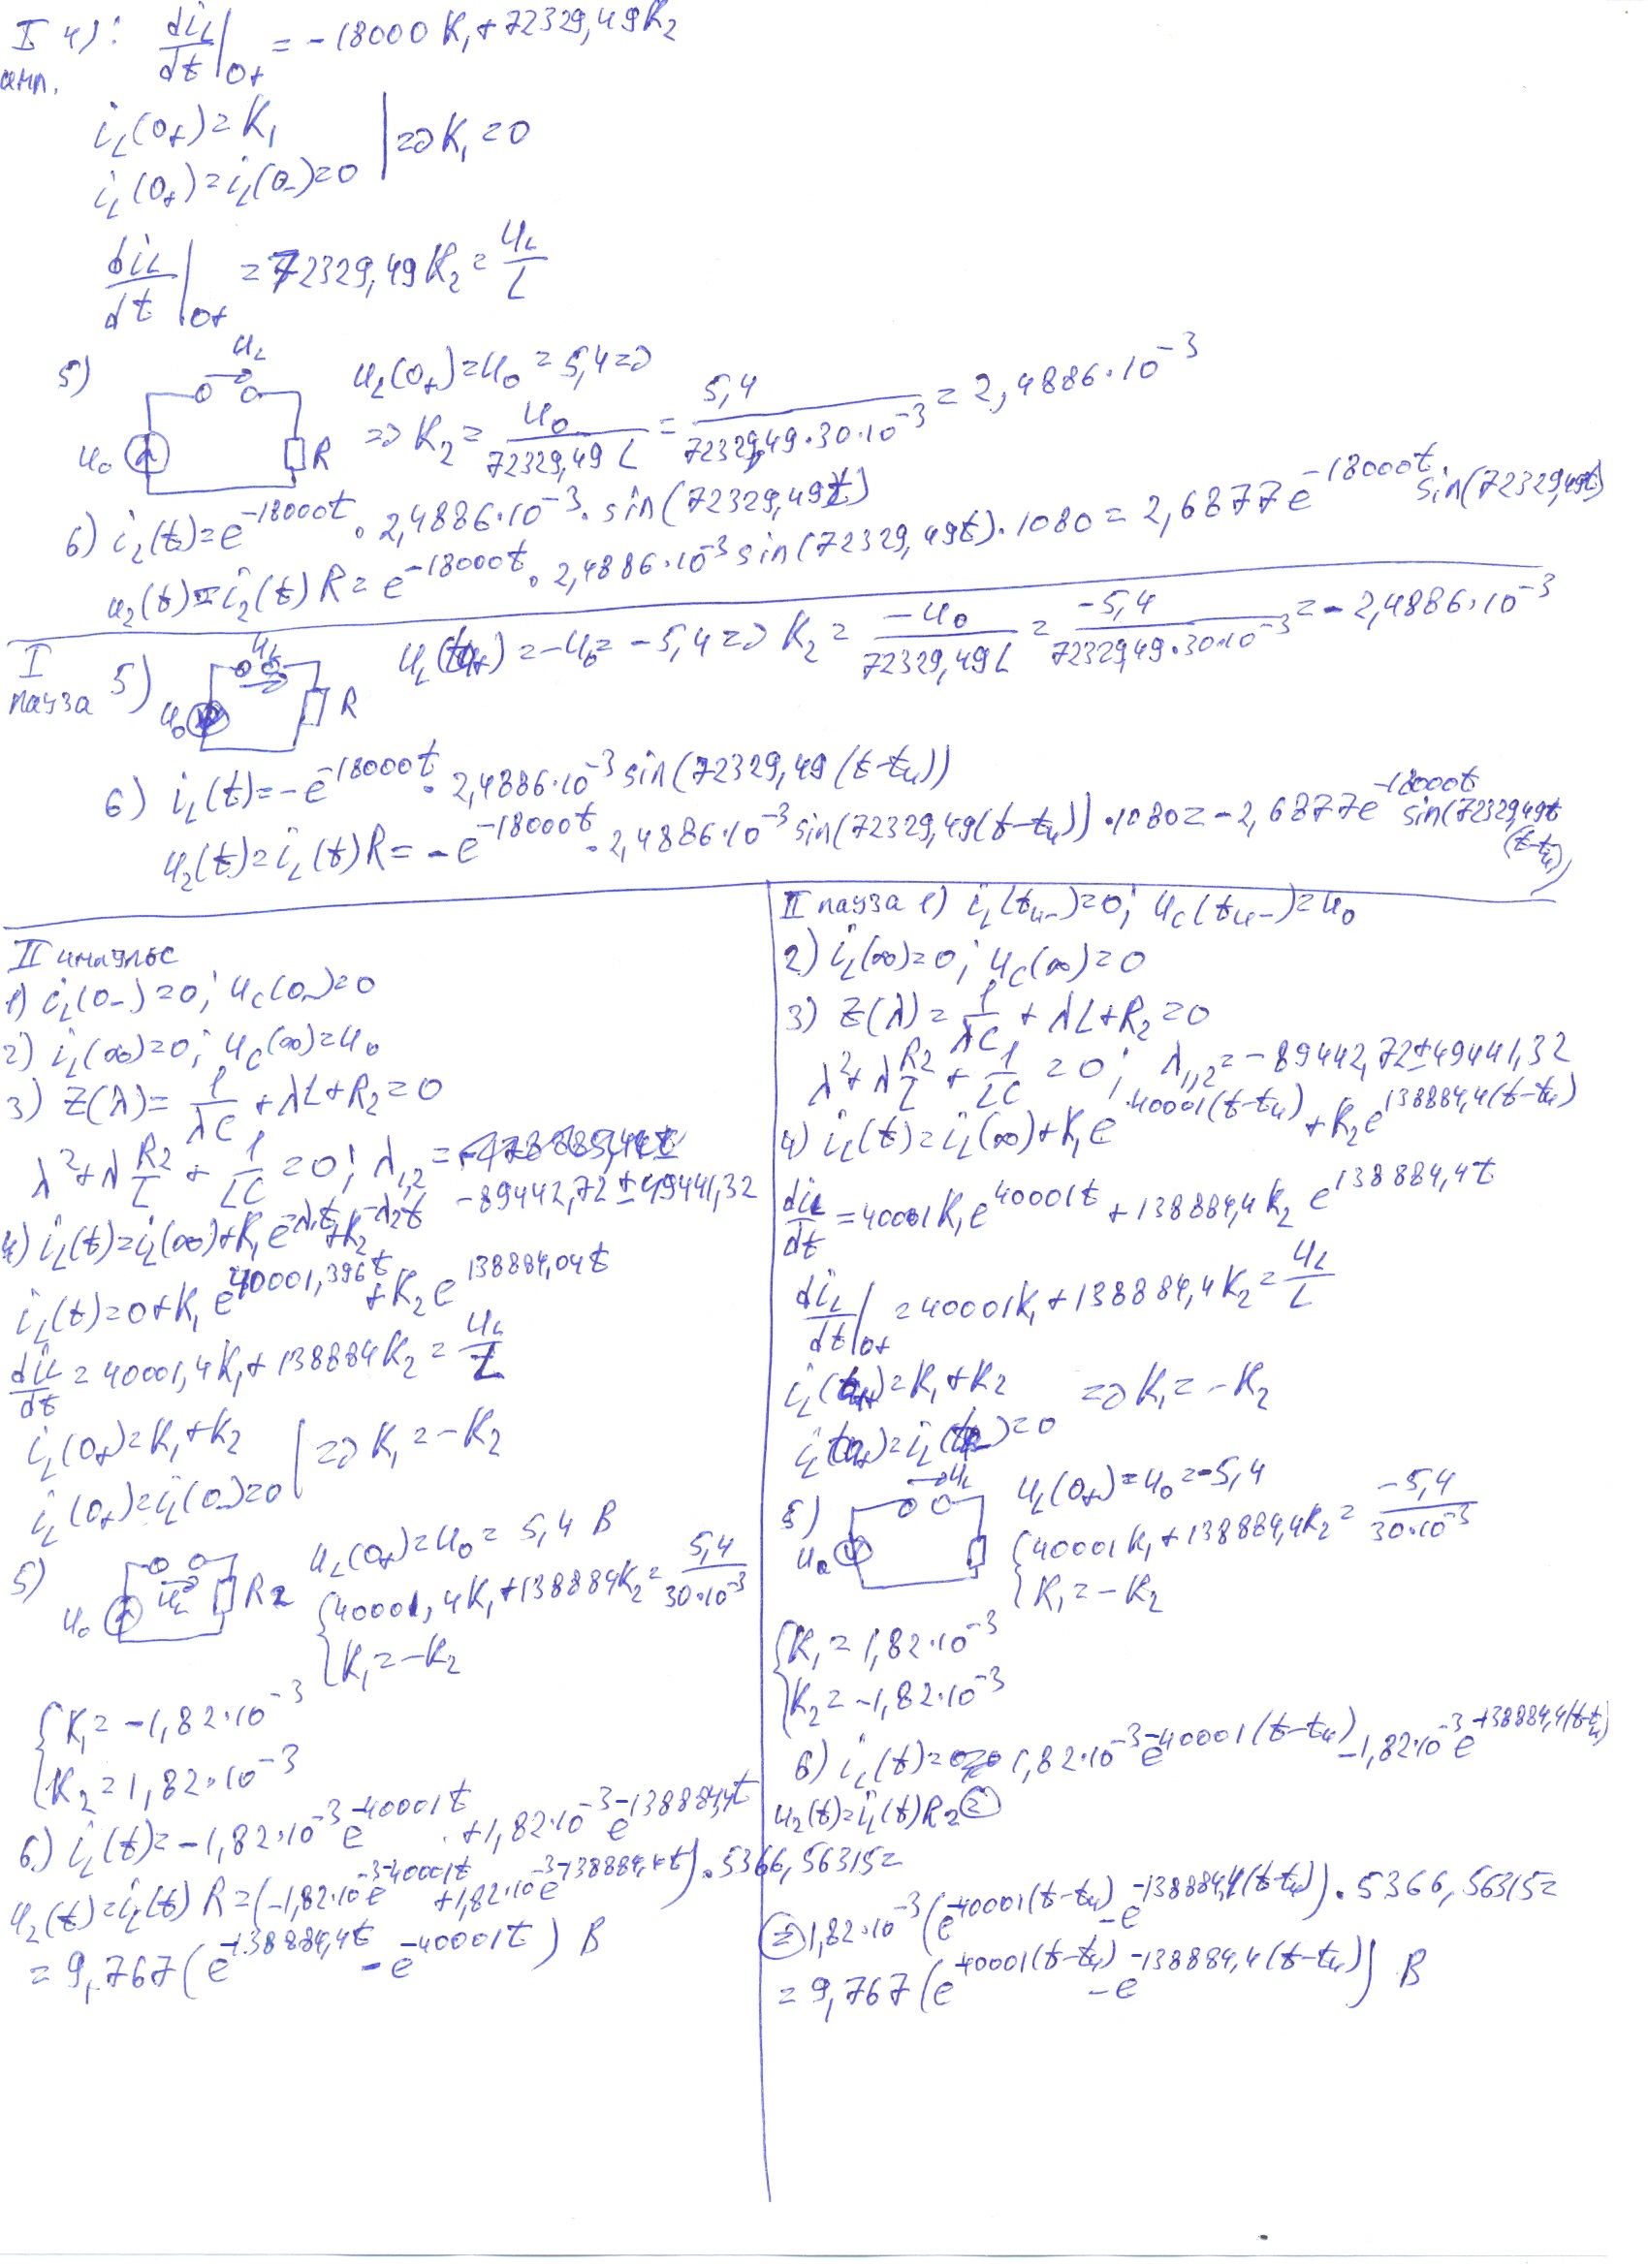 I 4): diL/dt|0+ = -18000 K1 + 72329,49 K2
имп.
iL(0+) = K1
iL(0+) = iL(0-) = 0 | => K1 = 0
diL/dt|0+ = 72329,49 K2 = uL/L
5) uL
u0 R
uL(0+) = u0 = 5,4 =>
=> K2 = u0/(72329,49 L) = 5,4/(72329,49·30·10^-3) = 2,4886·10^-3
6) iL(t) = e^(-18000t) · 2,4886·10^-3 · sin(72329,49t)
u2(t) = i2(t) R = e^(-18000t) · 2,4886·10^-3 sin(72329,49t)·1080 = 2,6877 e^(-18000t) · sin(72329,49t)
I
пауза 5) uL
u0 R
uL(tu+) = -u0 = -5,4 => K2 = -u0/(72329,49 L) = -5,4/(72329,49·30·10^-3) = -2,4886·10^-3
6) iL(t) = -e^(-18000t) · 2,4886·10^-3 sin(72329,49(t-tu))
u2(t) = iL(t) R = -e^(-18000t) · 2,4886·10^-3 sin(72329,49(t-tu))·1080 = -2,6877 e^(-18000t) sin(72329,49t (t-tu))
II импульс
1) iL(0-) = 0; uC(0-) = 0
2) iL(∞) = 0; uC(∞) = u0
3) Z(λ) = 1/(λC) + λL + R2 = 0
λ² + λ R2/L + 1/(LC) = 0; λ1,2 =
-89442,72 ± 49441,32
4) iL(t) = iL(∞) + K1 e^(-λ1t) + K2 e^(-λ2t)
iL(t) = 0 + K1 e^(40001,396t) + K2 e^(138884,04t)
diL/dt = 40001,4 K1 + 138884 K2 = uL/L
iL(0+) = K1 + K2
iL(0+) = iL(0-) = 0 | => K1 = -K2
5) uL
u0 R2
uL(0+) = u0 = 5,4 В
{ 40001,4 K1 + 138884 K2 = 5,4/(30·10^-3)
K1 = -K2
{ K1 = -1,82·10^-3
K2 = 1,82·10^-3
6) iL(t) = -1,82·10^-3 e^(-40001t) + 1,82·10^-3 e^(-138884,4t)
u2(t) = iL(t) R = (-1,82·10^-3 e^(-40001t) + 1,82·10^-3 e^(-138884,4t))·5366,56315 =
= 9,767 (e^(-138884,4t) - e^(-40001t)) В
II пауза 1) iL(tu-) = 0; uC(tu-) = u0
2) iL(∞) = 0; uC(∞) = 0
3) Z(λ) = 1/(λC) + λL + R2 = 0
λ² + λ R2/L + 1/(LC) = 0; λ1,2 = -89442,72 ± 49441,32
4) iL(t) = iL(∞) + K1 e^(40001(t-tu)) + K2 e^(138884,4(t-tu))
diL/dt = 40001 K1 e^(40001t) + 138884,4 K2 e^(138884,4t)
diL/dt|0+ = 40001 K1 + 138884,4 K2 = uL/L
iL(tu+) = K1 + K2 => K1 = -K2
iL(tu+) = iL(tu-) = 0
5) uL
u0
uL(0+) = u0 = -5,4
{ 40001 K1 + 138884,4 K2 = -5,4/(30·10^-3)
K1 = -K2
{ K1 = 1,82·10^-3
K2 = -1,82·10^-3
6) iL(t) = 1,82·10^-3 e^(-40001(t-tu)) - 1,82·10^-3 e^(-138884,4(t-tu))
u2(t) = iL(t) R2 =
= 1,82·10^-3 (e^(-40001(t-tu)) - e^(-138884,4(t-tu)))·5366,56315 =
= 9,767 (e^(-40001(t-tu)) - e^(-138884,4(t-tu))) В